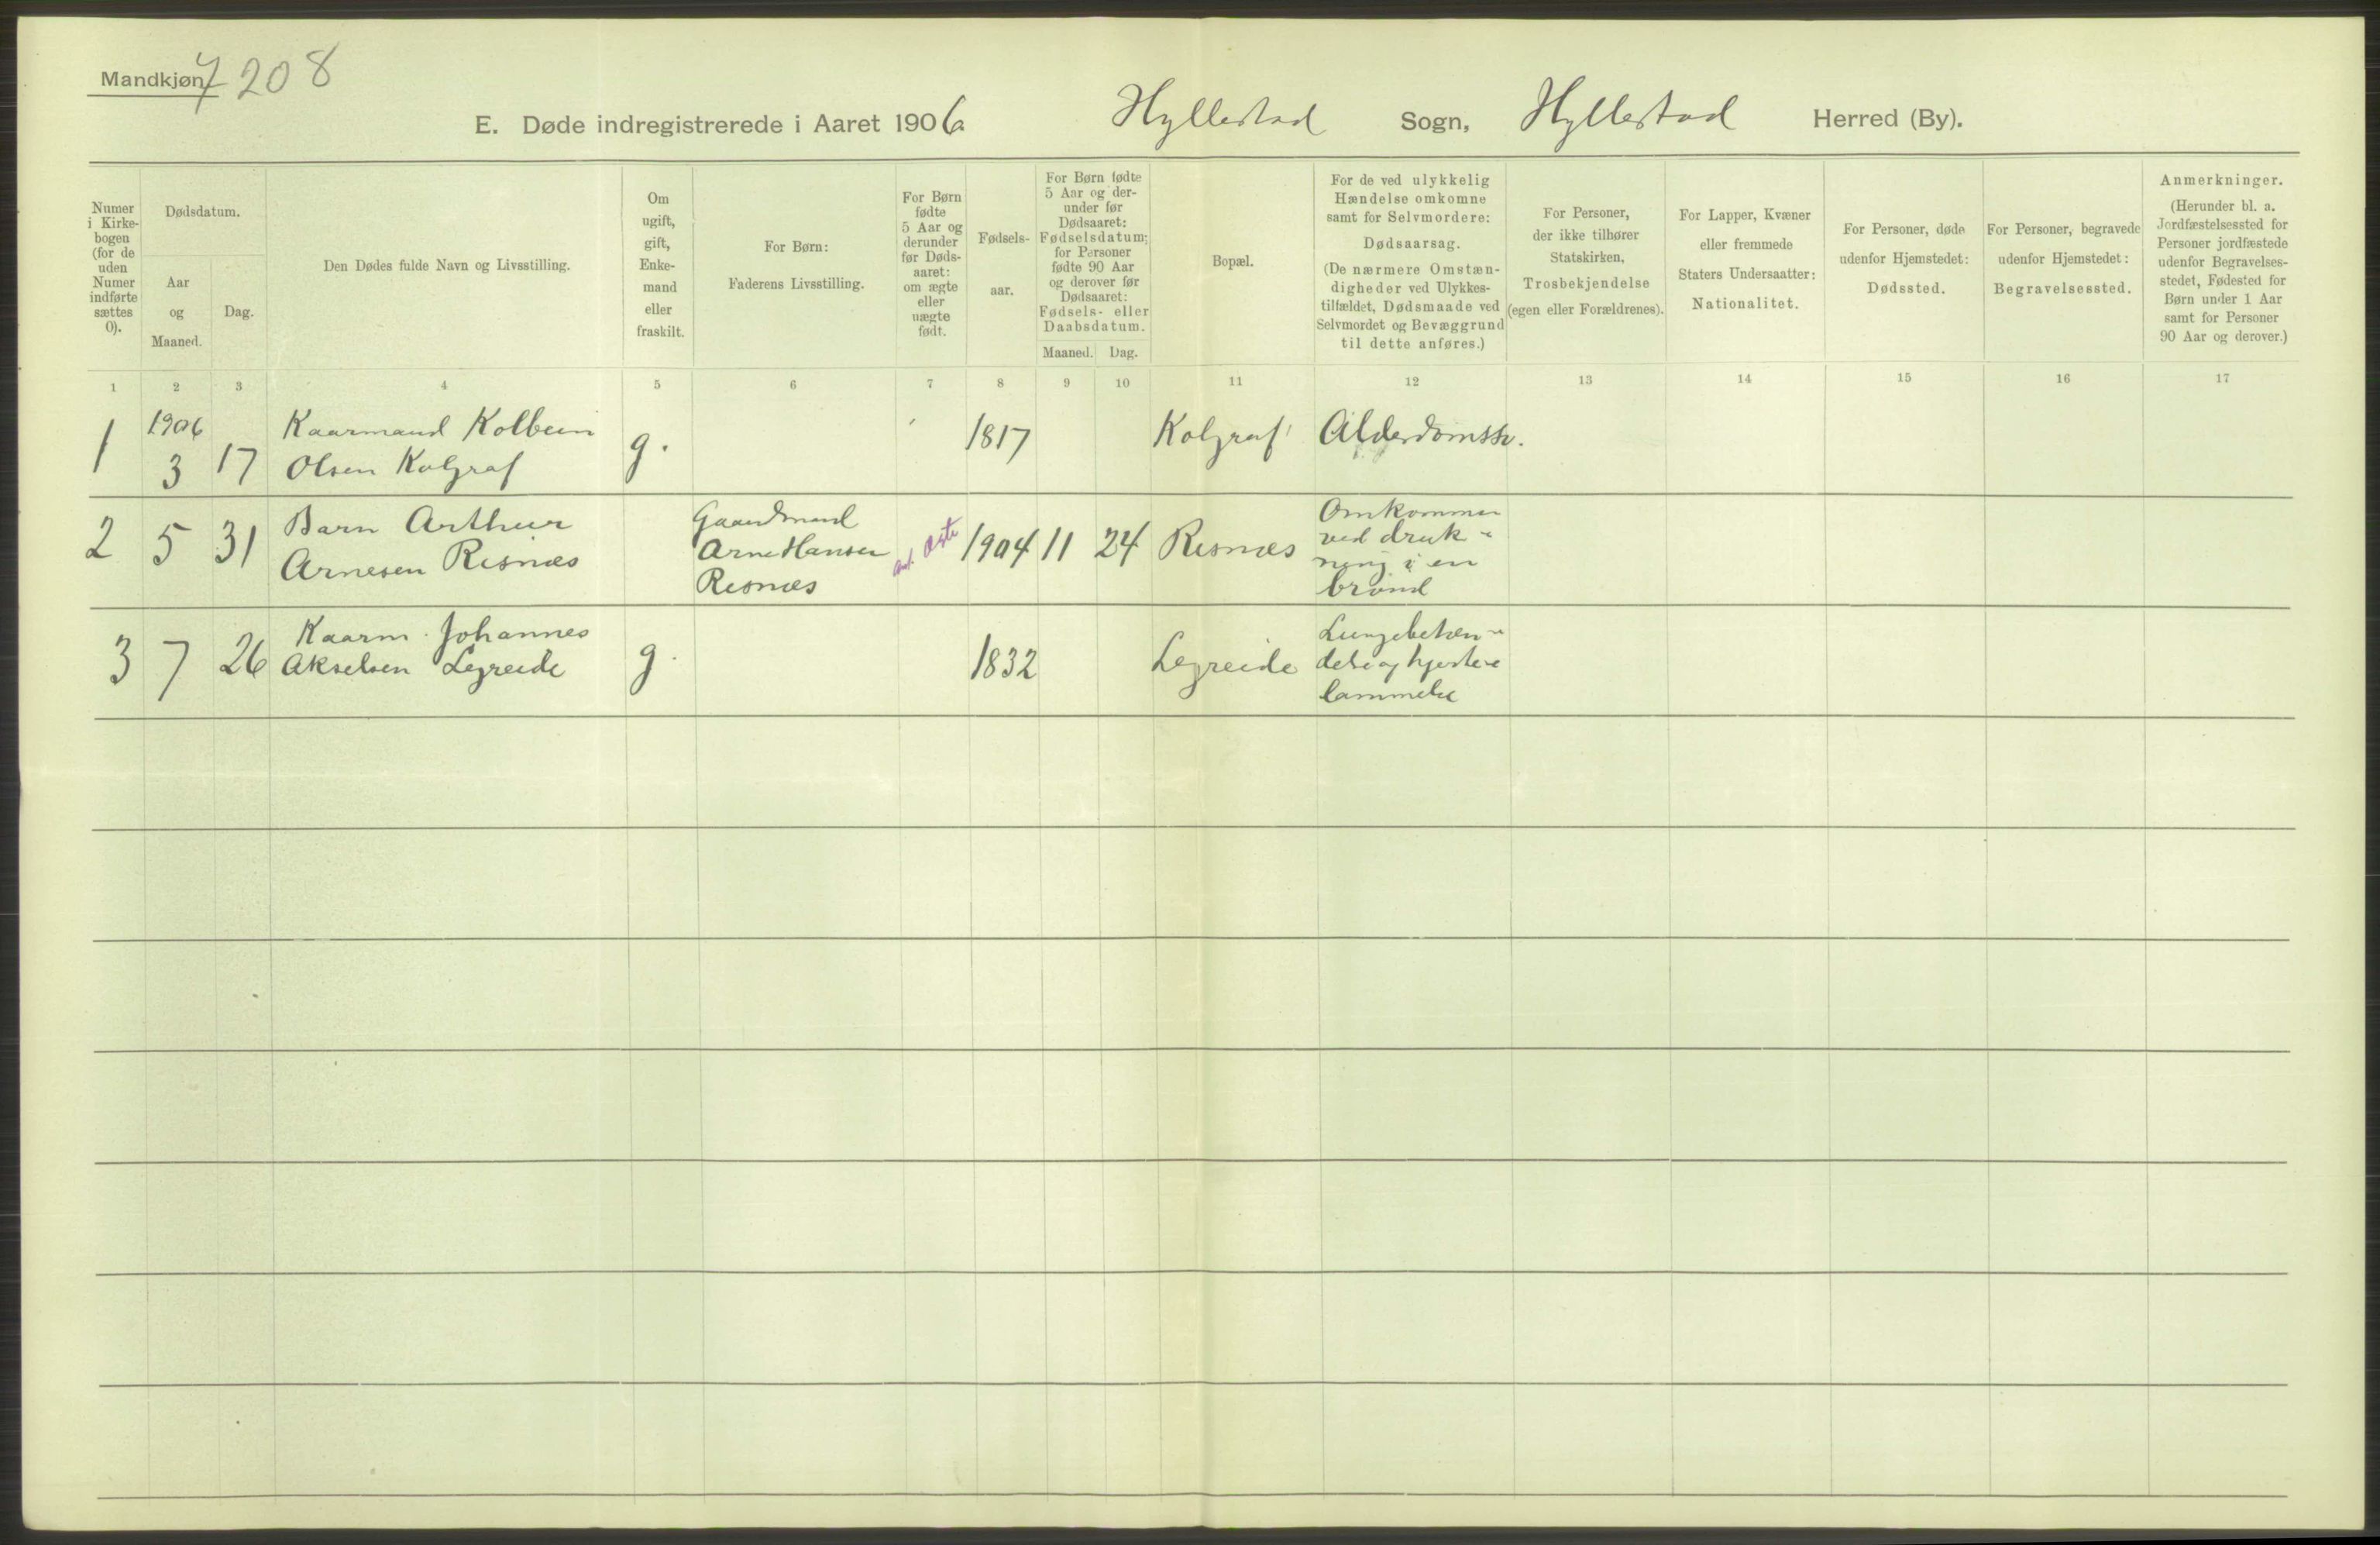 Mandkjøn
7208
E. Døde indregistrerede i Aaret 1906 Hyllestad Sogn, Hyllestad Herred (By).
Numer
i Kirke-
bogen
(for de
uden
Numer
indførte
sættes
0).
Dødsdatum.
Aar
og
Maaned.
Dag.
Den Dødes fulde Navn og Livsstilling.
Om
ugift,
gift,
Enke-
mand
eller
fraskilt.
For Børn:
Faderens Livsstilling.
For Børn
fødte
5 Aar og
derunder
før Døds-
aaret:
om ægte
eller
uægte
født.
Fødsels-
aar.
For Børn fødte
5 Aar og der-
under før
Dødsaaret:
Fødselsdatum;
for Personer
fødte 90 Aar
og derover før
Dødsaaret:
Fødsels- eller
Daabsdatum.
Maaned. Dag.
Bopæl.
For de ved ulykkelig
Hændelse omkomne
samt for Selvmordere:
Dødsaarsag.
(De nærmere Omstæn-
digheder ved Ulykkes-
tilfældet, Dødsmaade ved
Selvmordet og Bevæggrund
til dette anføres.)
For Personer,
der ikke tilhører
Statskirken,
Trosbekjendelse
(egen eller Forældrenes).
For Lapper, Kvæner
eller fremmede
Staters Undersaatter:
Nationalitet.
For Personer, døde
udenfor Hjemstedet:
Dødssted.
For Personer, begravede
udenfor Hjemstedet:
Begravelsessted.
Anmerkninger.
(Herunder bl. a.
Jordfæstelsessted for
Personer jordfæstede
udenfor Begravelses-
stedet, Fødested for
Børn under 1 Aar
samt for Personer
90 Aar og derover.)
1 2 3 4 5 6 7 8 9 10 11 12 13 14 15 16 17
1 1906
3 17 Kaarmand Kolbein
Olsen Kolgraf
g. 1817 Kolgraf Alderdomssv.
2 5 31 Barn Arthur
Arnesen Risnæs
Gaardmand
Arne Hansen
Risnæs
ant. ægte
1904 11 24 Risnæs
Omkommen
ved druk-
ning i en
brønd
3 7 26 Kaarm. Johannes
Akselsen Legreide
g. 1832 Legreide
Lungebetæn-
delse og hjerte-
lammelse